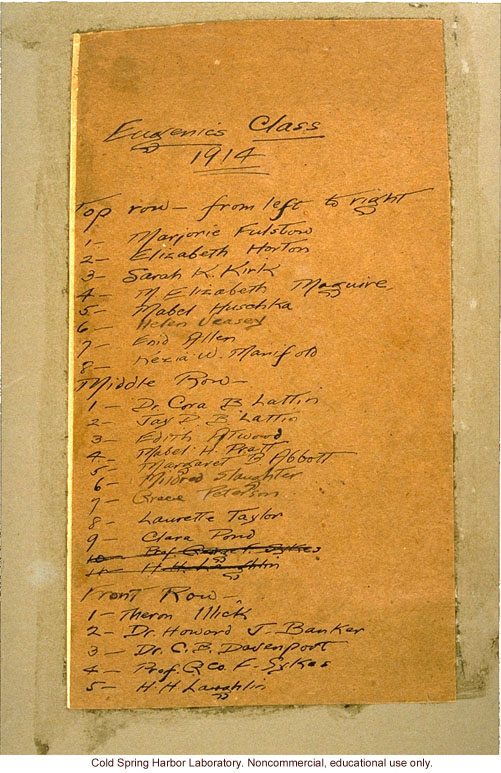 Eugenics Class
1914
Top row — from left to right
1 — Marjorie Fulstow
2 — Elizabeth Horton
3 — Sarah K. Kirk
4 — M Elizabeth Maguire
5 — Mabel Huschka
6 — Helen Veasey
7 — Enid Allen
8 — Kezia W. Manifold
Middle Row —
1 — Dr. Cora B Lattin
2 — Jay D. B Lattin
3 — Edith Atwood
4 — Mabel H. Pratt
5 — Margaret B Abbott
6 — Mildred Slaughter
7 — Grace Peterson
8 — Laurette Taylor
9 — Clara Pond
10 — Prof. George F. Sykes
11 — H. H. Laughlin
Front Row —
1 — Theron Illick
2 — Dr. Howard J. Banker
3 — Dr. C. B. Davenport
4 — Prof. Geo. F. Sykes
5 — H. H Laughlin
Cold Spring Harbor Laboratory. Noncommercial, educational use only.